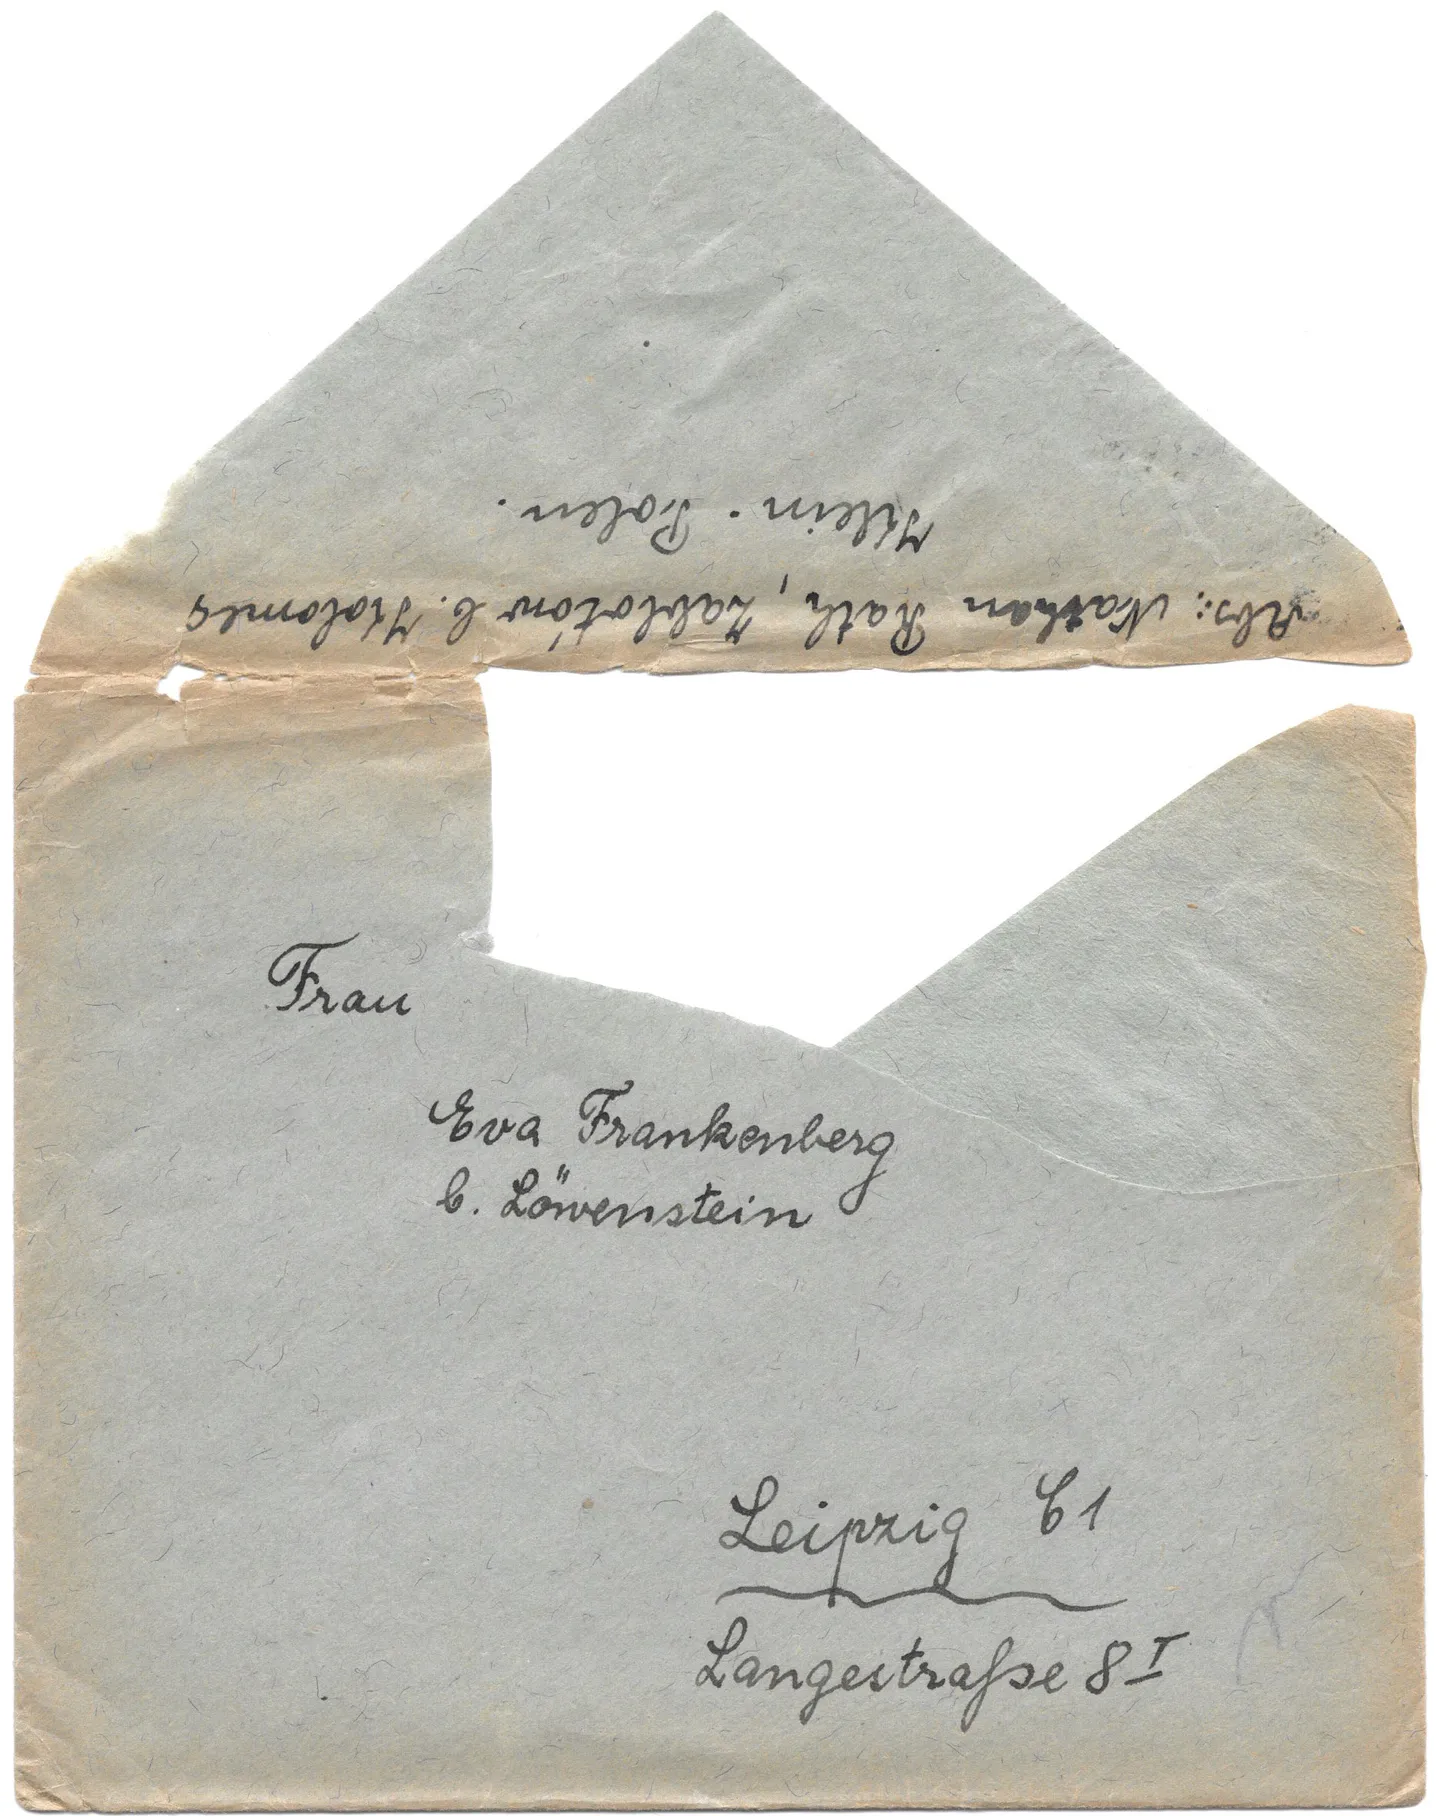 Abs: Nathan Rath, Zablotów b. Kolomea
Klein - Polen.
Frau
Eva Frankenberg
b. Löwenstein
Leipzig C1
Langestraße 8 I